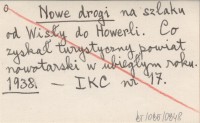 Nowe drogi na szlaku
od Wisły do Howerli. Co
zyskał turystyczny powiat
nowotarski w ubiegłym roku.
1938. - IKC nr 17.